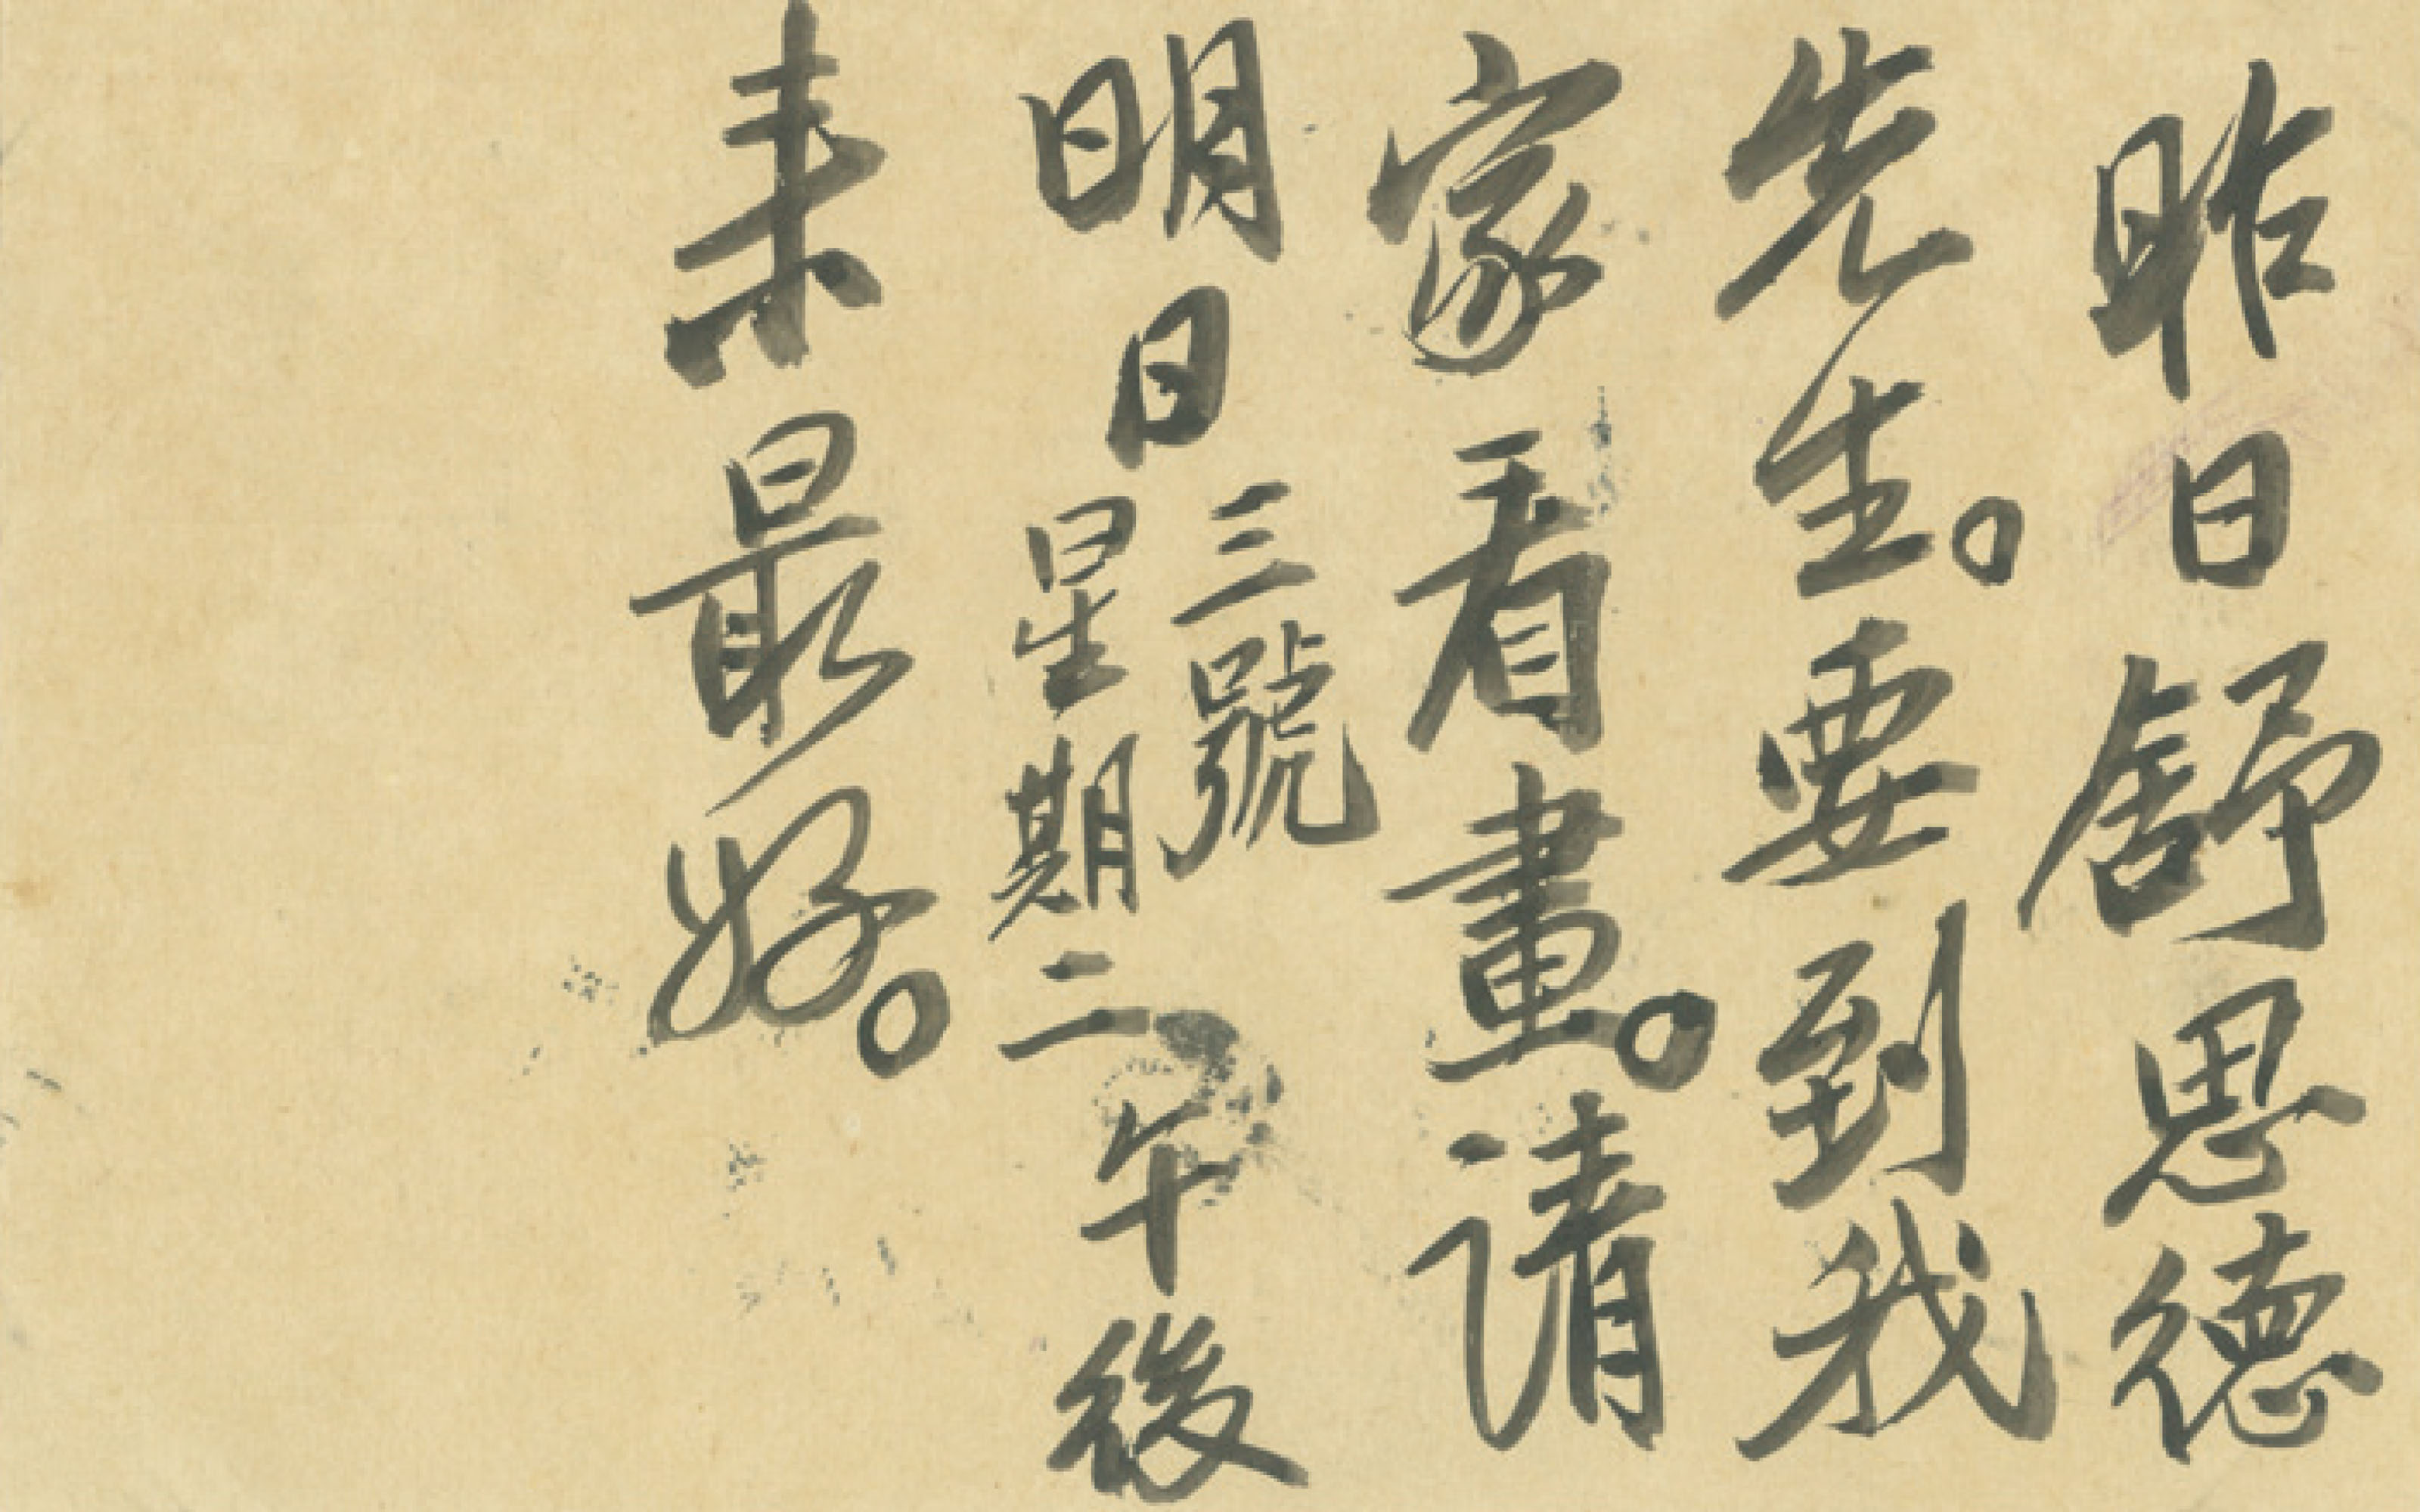 昨日舒思德
先生。要到我
家看畫。请
明日三號星期二午後
来最好。